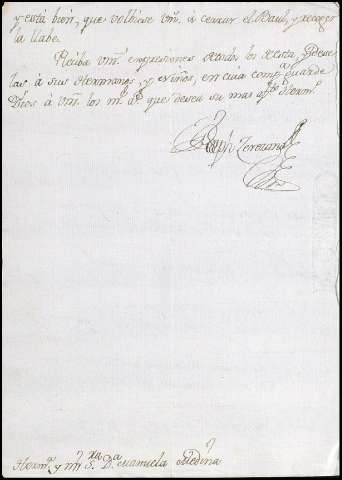 y está bien, que volbiese Vm. à cerrar el Baul, y recoger
la llabe.
Reciba Vm. expresiones de todos los de esta, y dese
las à sus Hermanos, y niños, en cuia comp.a guarde
Dios à Vm. los m.s a.s que desea su mas af.to Herm.o
Joseph
Herm.a y mi S.ra D.a Manuela Medina